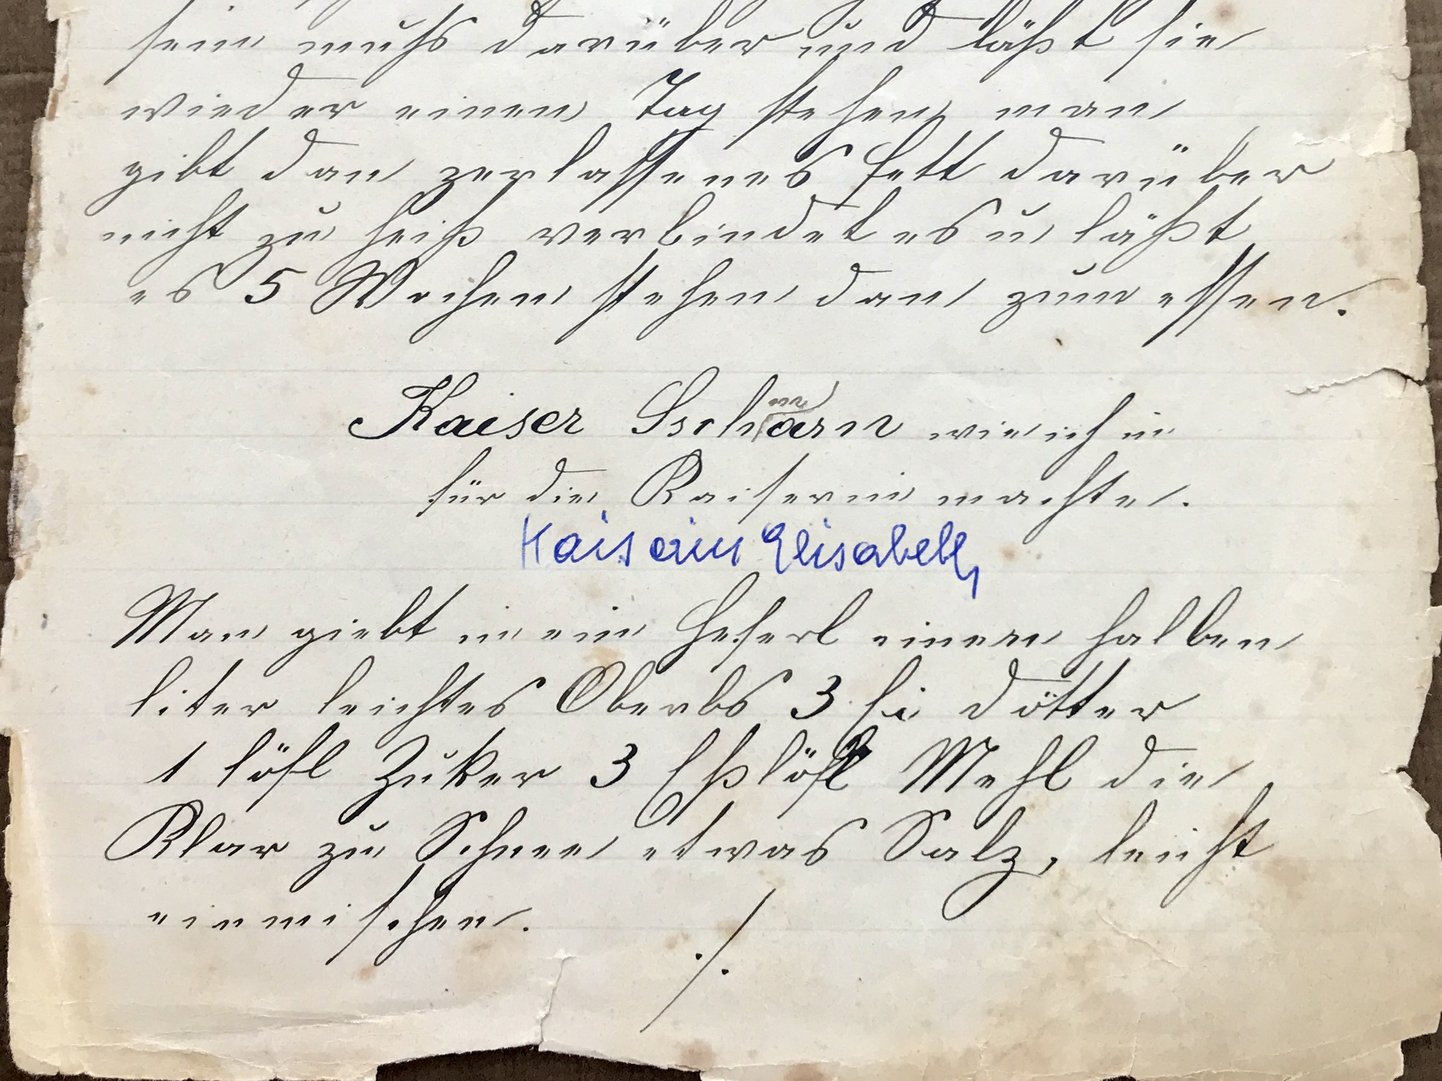 sein muß darüber und läßt sie
wieder einen Tag stehen, man
gibt dan zerlassenes Fett darüber
nicht zu heiß verbindet es u läßt
es 5 Wochen stehen dan zum essen.
Kaiser Gscharn wie ich in
für die Kaiserin machte.
Kaiserin Elisabeth
Man giebt in ein Heferl einen halben
liter leichtes Oberbs 3 Ei Dötter
1 löfl Zuker 3 Eßlöfl Mehl die
Klar zu Schnee etwas Salz, leicht
einmischen.
./.